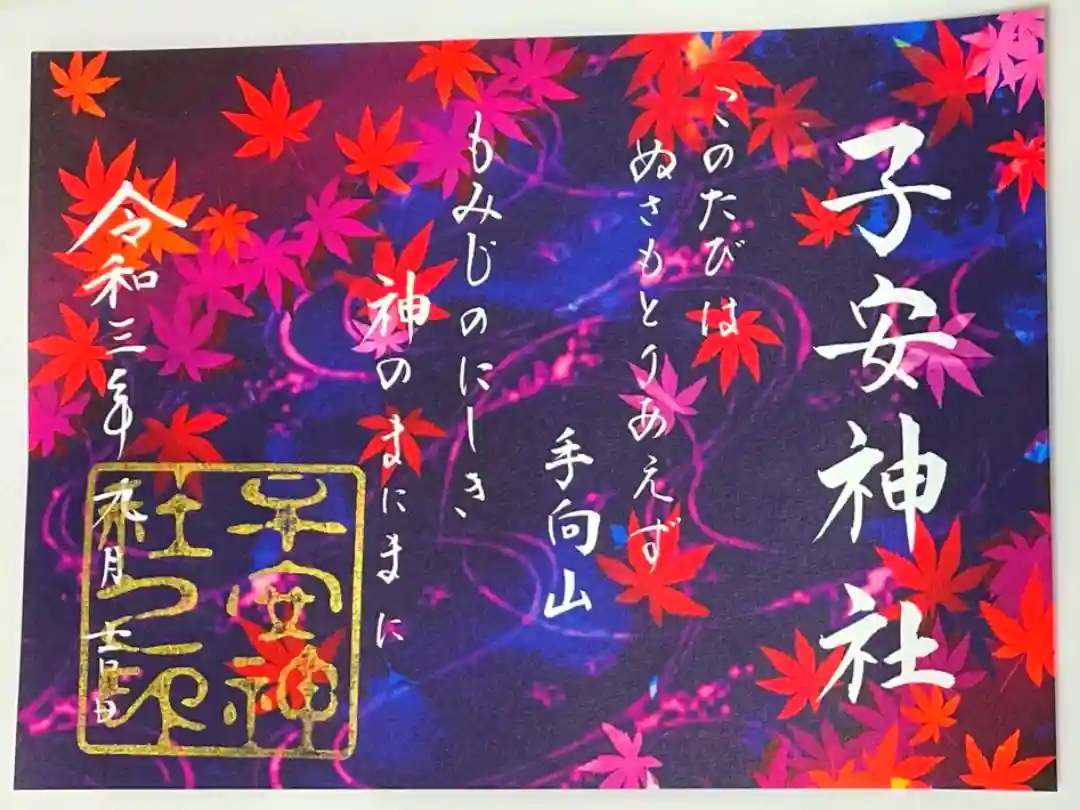 子安神社
このたびは
ぬさもとりあえず
手向山
もみじのにしき、
神のまにまに
令和三年九月
子安神
社之印